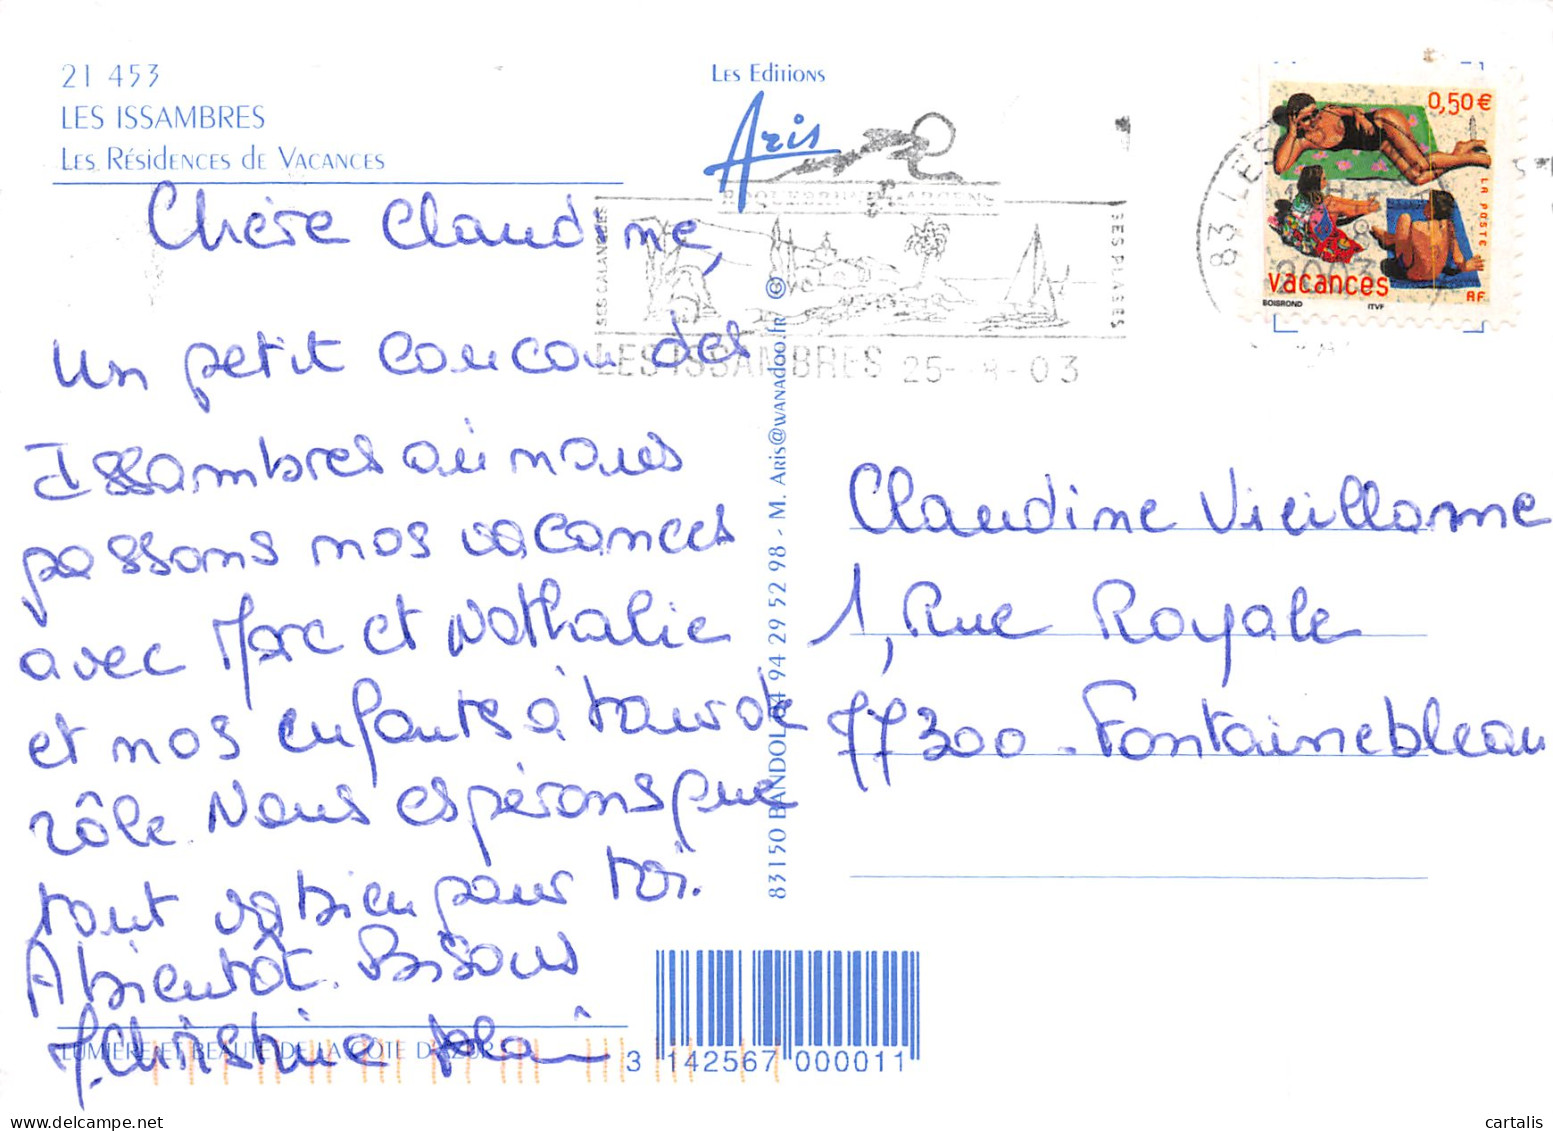 21 453
LES ISSAMBRES
Les Résidences de Vacances
Les Editions
Aris
Chère Claudine,
un petit coucou des
Issambres où nous
passons nos vacances
avec Marc et Nathalie
et nos enfants à tour de
rôle. Nous espérons que
tout va bien pour toi.
A bientôt. Bisous
Christine
LUMIÈRE ET BEAUTÉ DE LA CÔTE D'AZUR
83150 BANDOL 04 94 29 52 98 - M. Aris@wanadoo.fr
ROQUEBRUNE S/ARGENS
SES CALANQUES
SES PLAGES
LES ISSAMBRES 25-8-03
83 LES
2003
0,50€
LA POSTE
vacances
RF
BOISROND
ITVF
Claudine Vieillame
1, Rue Royale
77300 - Fontainebleau
3 142567 000011
cartalis